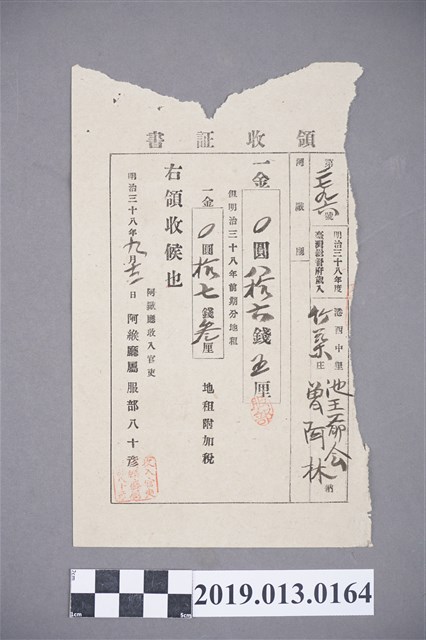 領收証書
第二九六號
明治三十八年度
臺灣總督府歲入
港西中里
竹葉庄
池王爺会
曾阿林
納
阿緱廳
一金〇圓拾六錢五厘
但明治三十八年前期分地租
一金〇圓拾七錢叁厘
地租附加稅
右領收候也
明治三十八年九月 日
阿緱廳收入官吏
阿緱廳屬服部八十彥
2cm
5cm
2019.013.0164